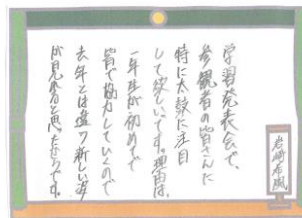 学習発表会で、
参観者の皆さんに
特に太鼓に注目
して欲しいです。理由は、
一年生が初めてで
皆で協力していくので
去年とは違う新しい姿
が見れると思ったからです。